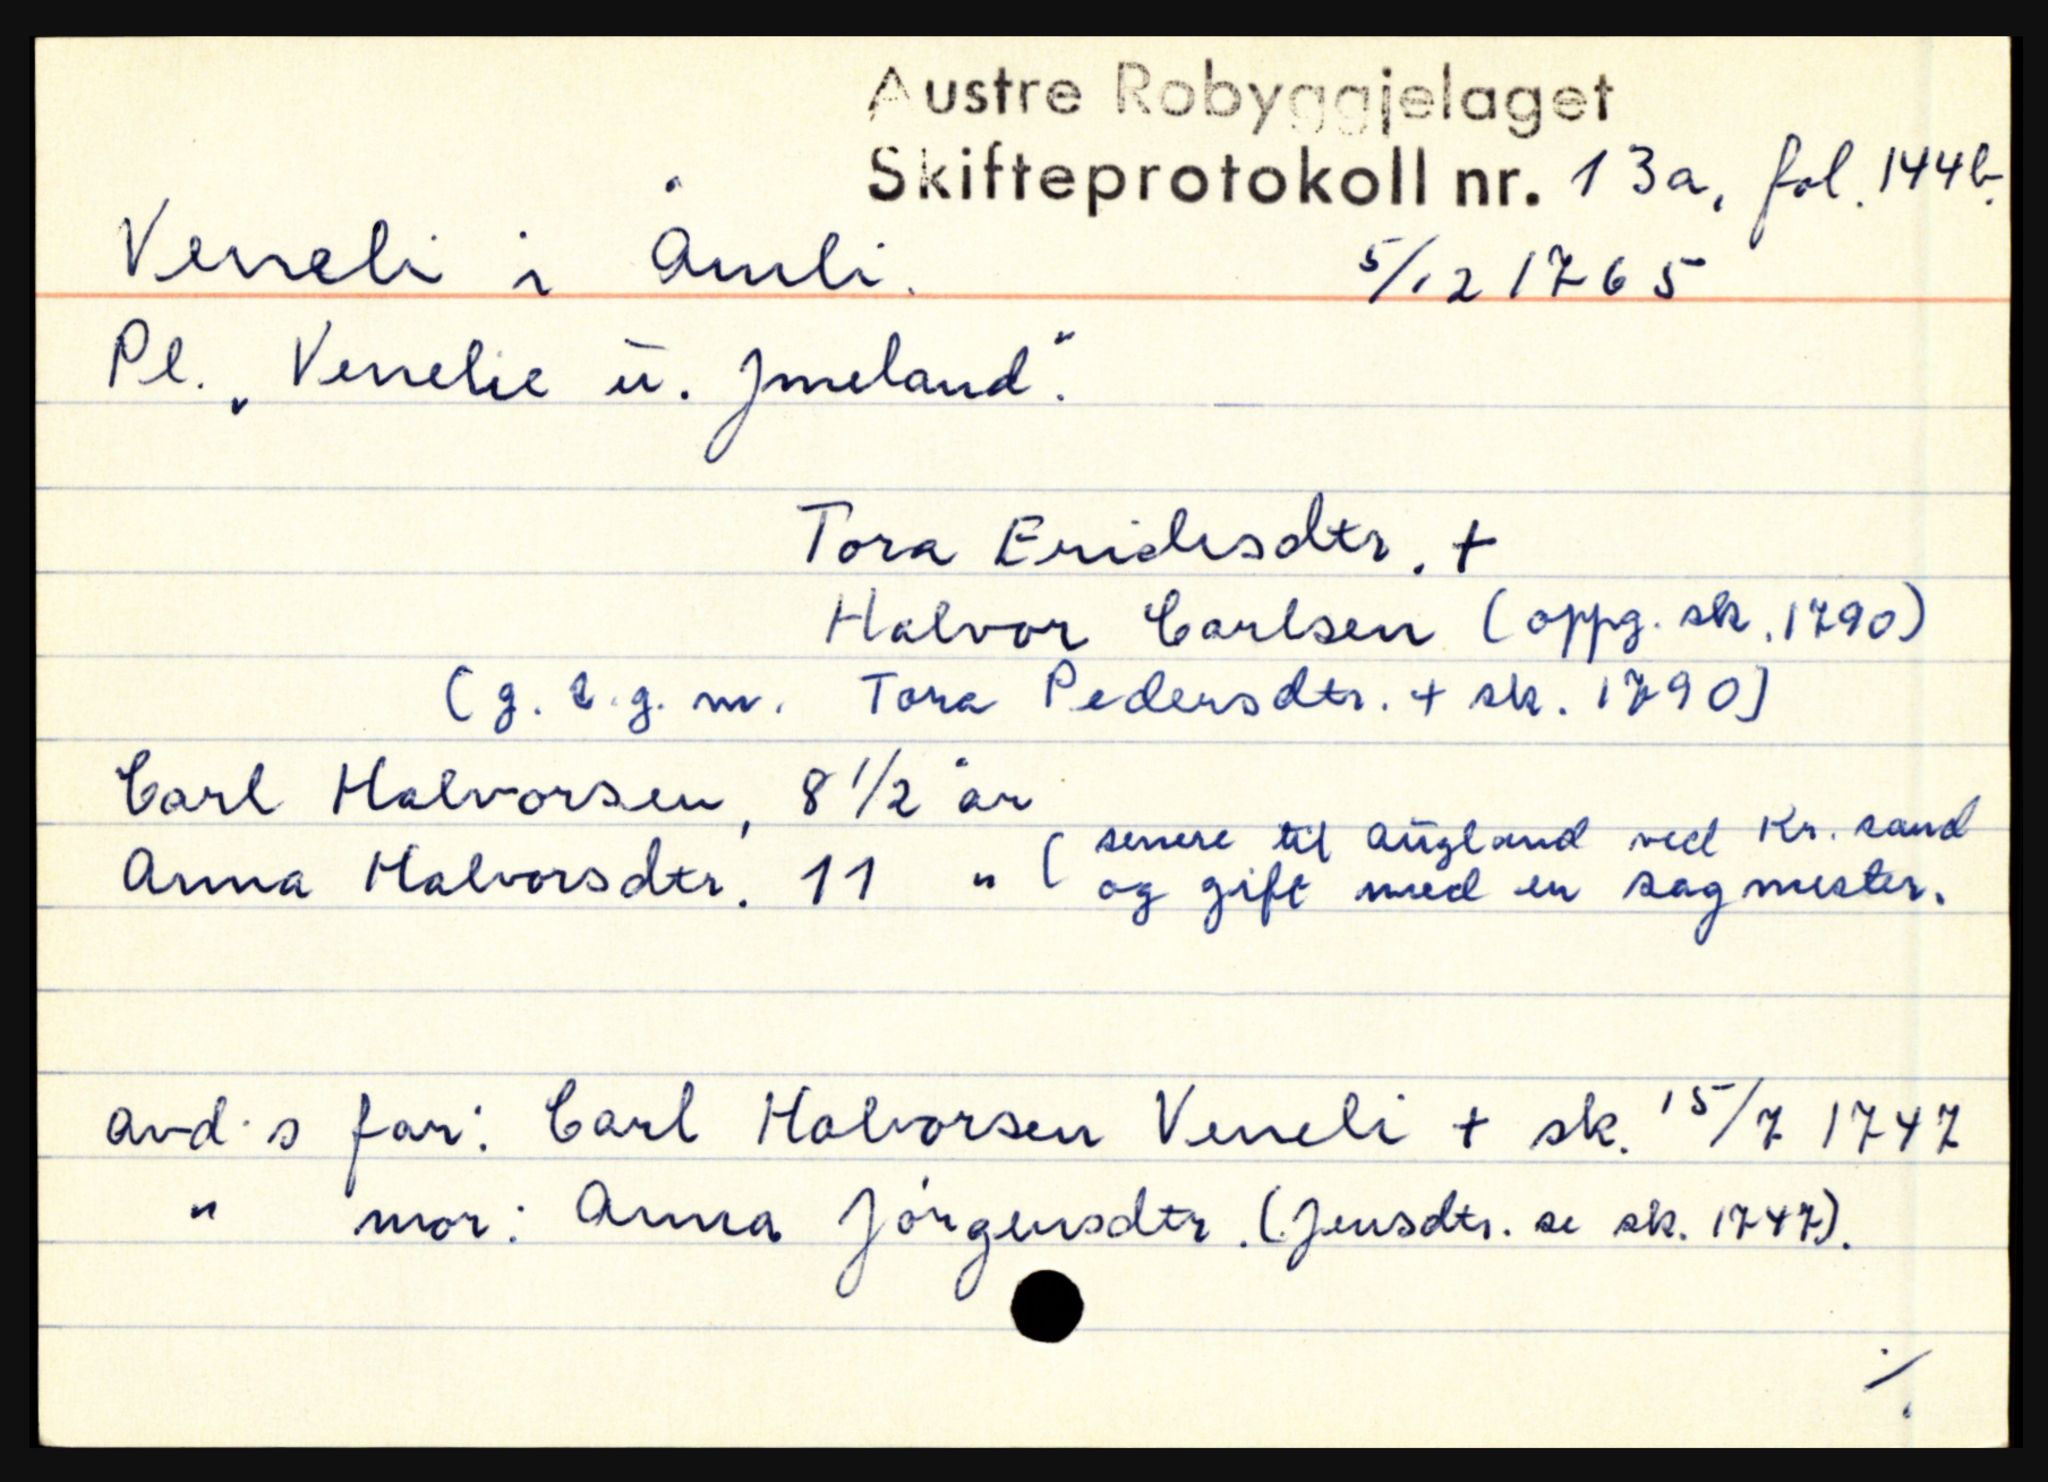 Austre Robyggjelaget
Skifteprotokoll nr. 13a, fol. 144b.
Veneli i Åmli. 5/12 1765
Pl. „Venelie u. Jmeland".
Tora Ericksdtr. +
Halvor Carlsen (oppg. sk. 1790)
(g. 2. g. m. Tora Pedersdtr. + sk. 1790)
Carl Halvorsen, 8 1/2 år
Anna Halvorsdtr. 11 " ( senere til Augland ved Kr. sand
og gift med en sagmester.
avd's far: Carl Halvorsen Veneli + sk. 15/7 1747
" mor: Anna Jörgensdtr. (Jensdtr. se sk. 1747).
./.